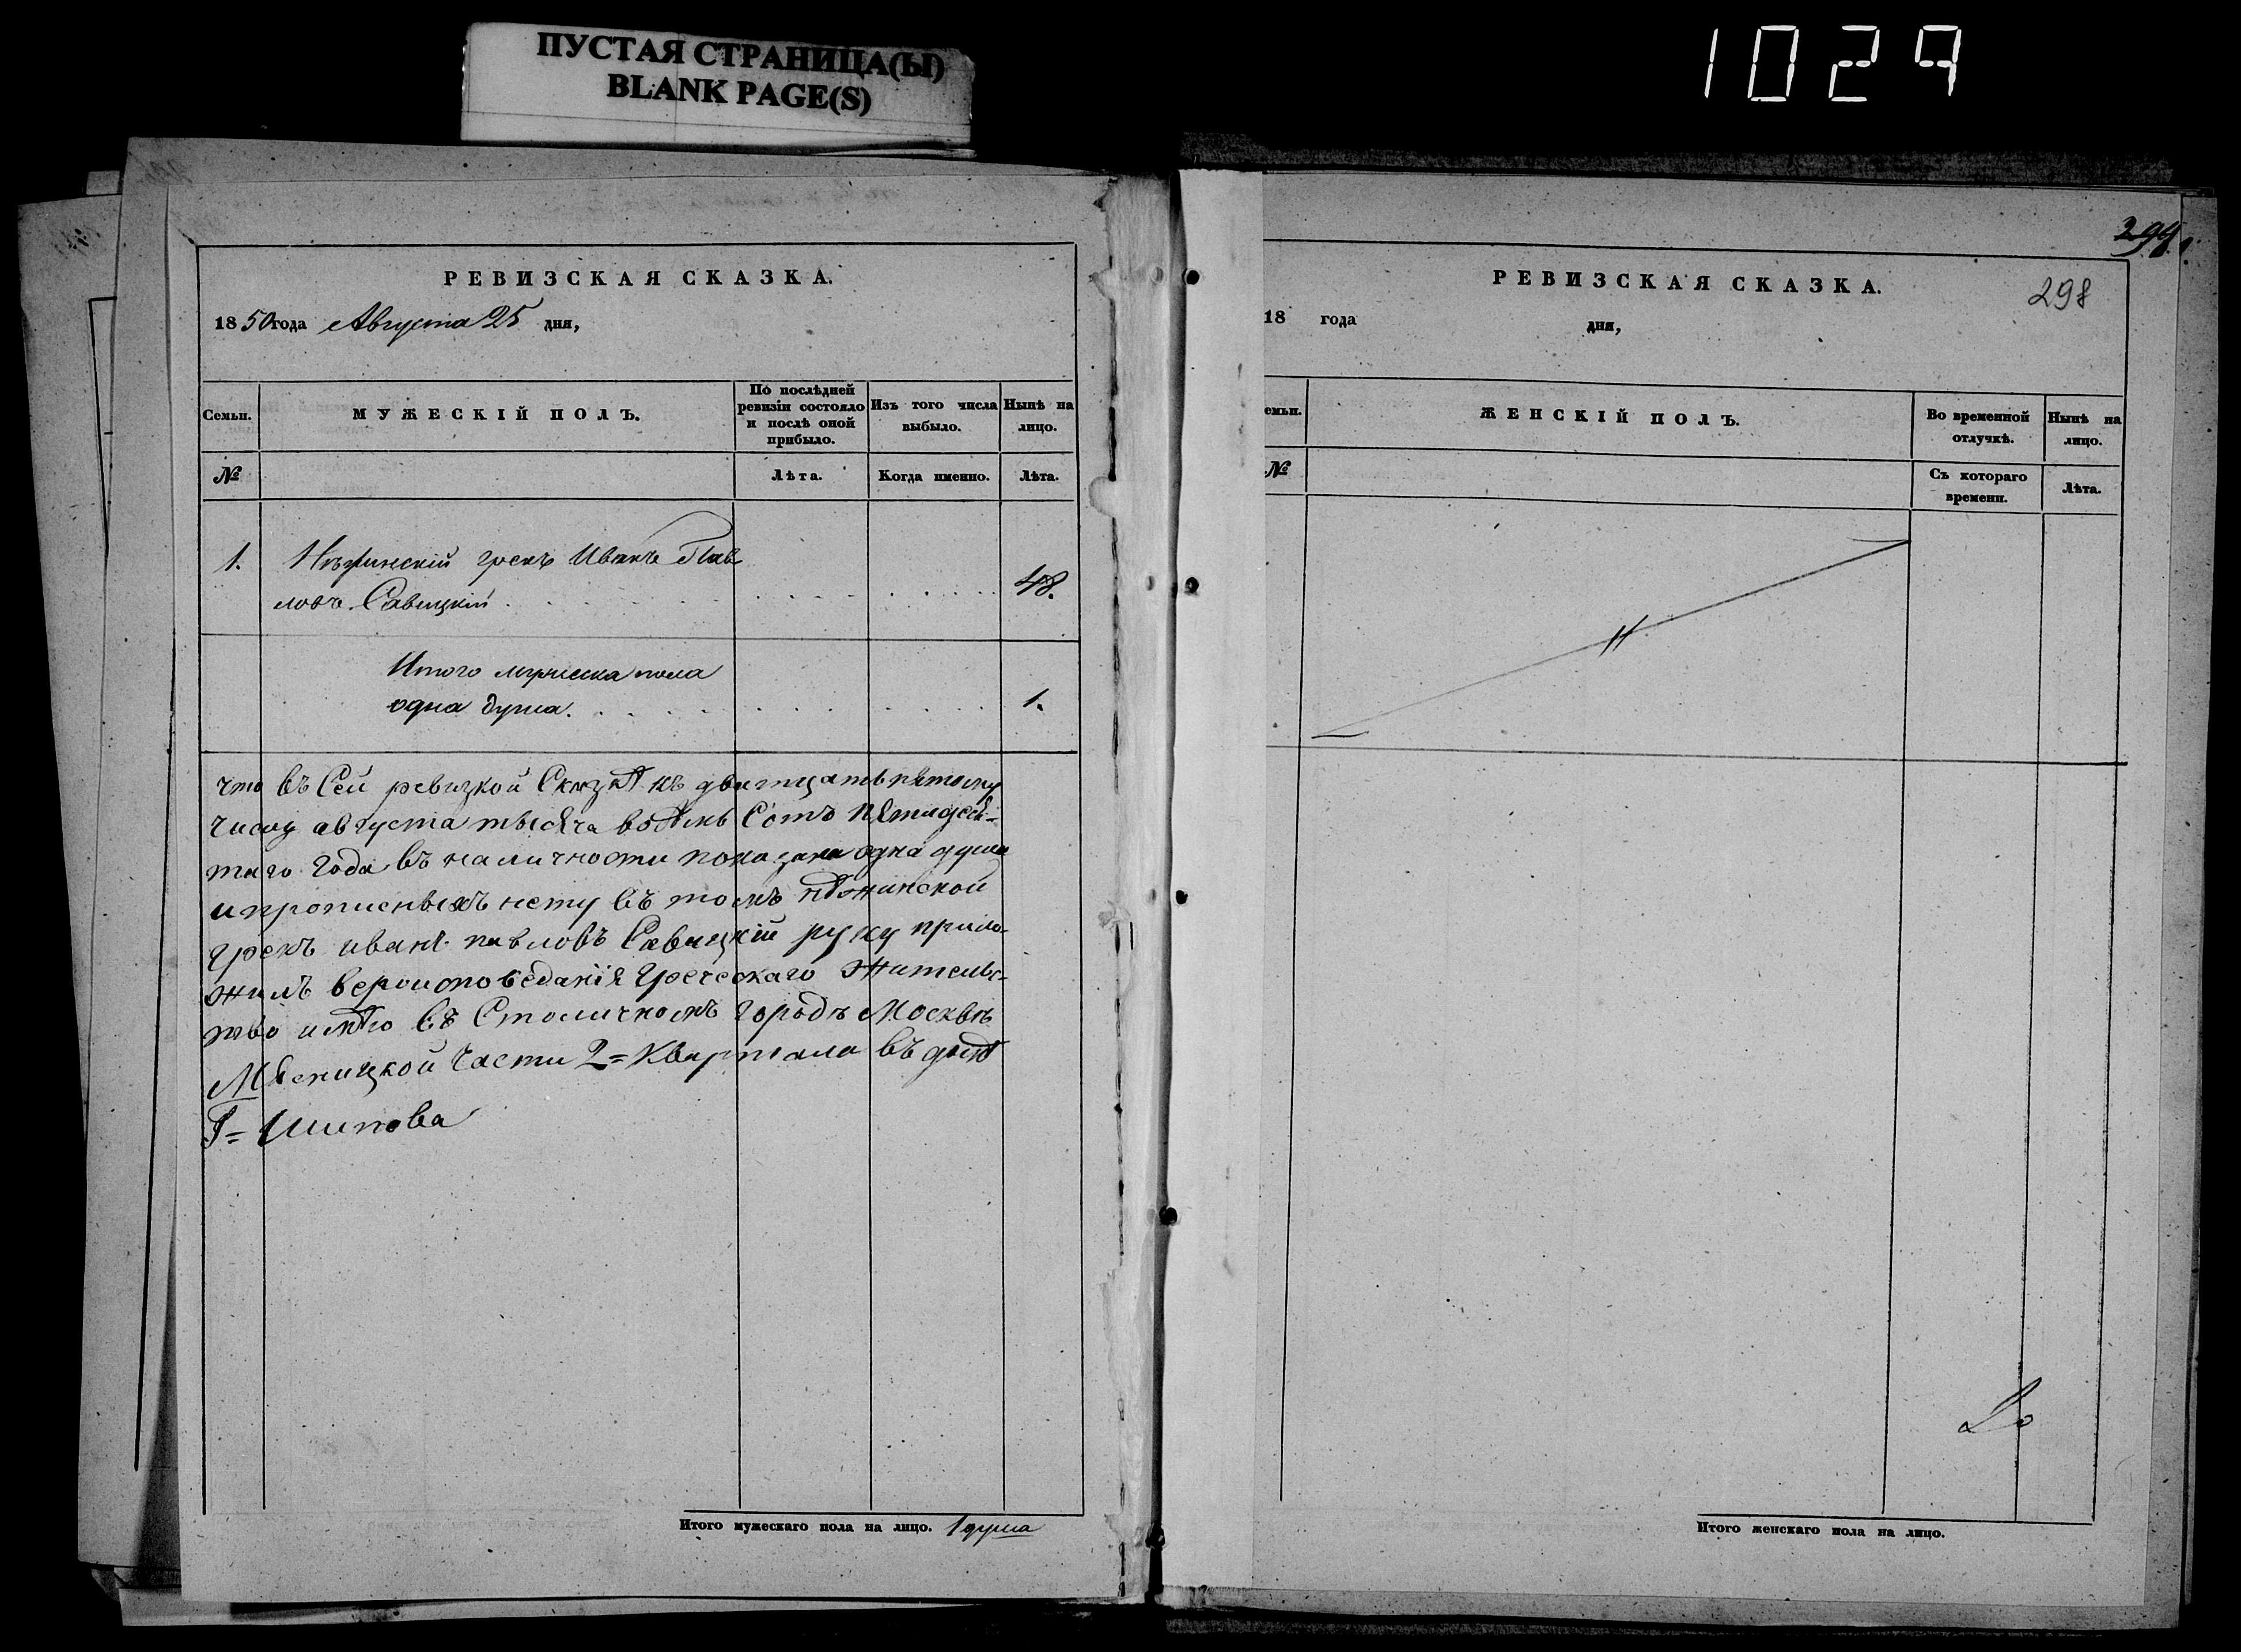 ПУСТАЯ СТРАНИЦА(Ы)
BLANK PAGE(S)
1029
РЕВИЗСКАЯ СКАЗКА.
1850 года Августа 25 дня,
Семьи.
МУЖЕСКІЙ ПОЛЪ.
По послѣдней ревизіи состояло и послѣ оной прибыло.
Изъ того числа выбыло.
Нынѣ на лицо.
№
Лѣта.
Когда именно.
Лѣта.
1. Нѣжинскій грекъ Иванъ Пав
ловъ Савицкій 48.
Итого мужеска пола
одна душа. 1.
что въ Сей ревизкой Сказкѣ къ двитцать пятому
числу августа тысяча восѣмь Сотъ пятидеся=
таго года въ наличности показана одна душа
и прописныхъ нету въ томъ нѣжинской
грекъ иванъ павловъ Савицкій руку прило-
жилъ вероисповеданія греческаго Жительс-
тво имѣю въ Столичномъ городѣ Москвѣ
Мясницкой части 2= Квартала въ домѣ
Г= Шипова
Итого мужескаго пола на лицо. 1 душа
298
РЕВИЗСКАЯ СКАЗКА.
18 года дня,
емьи.
ЖЕНСКІЙ ПОЛЪ.
Во временной отлучкѣ.
Нынѣ на лицо.
№
Съ котораго времени.
Лѣта.
Итого женскаго пола на лицо.